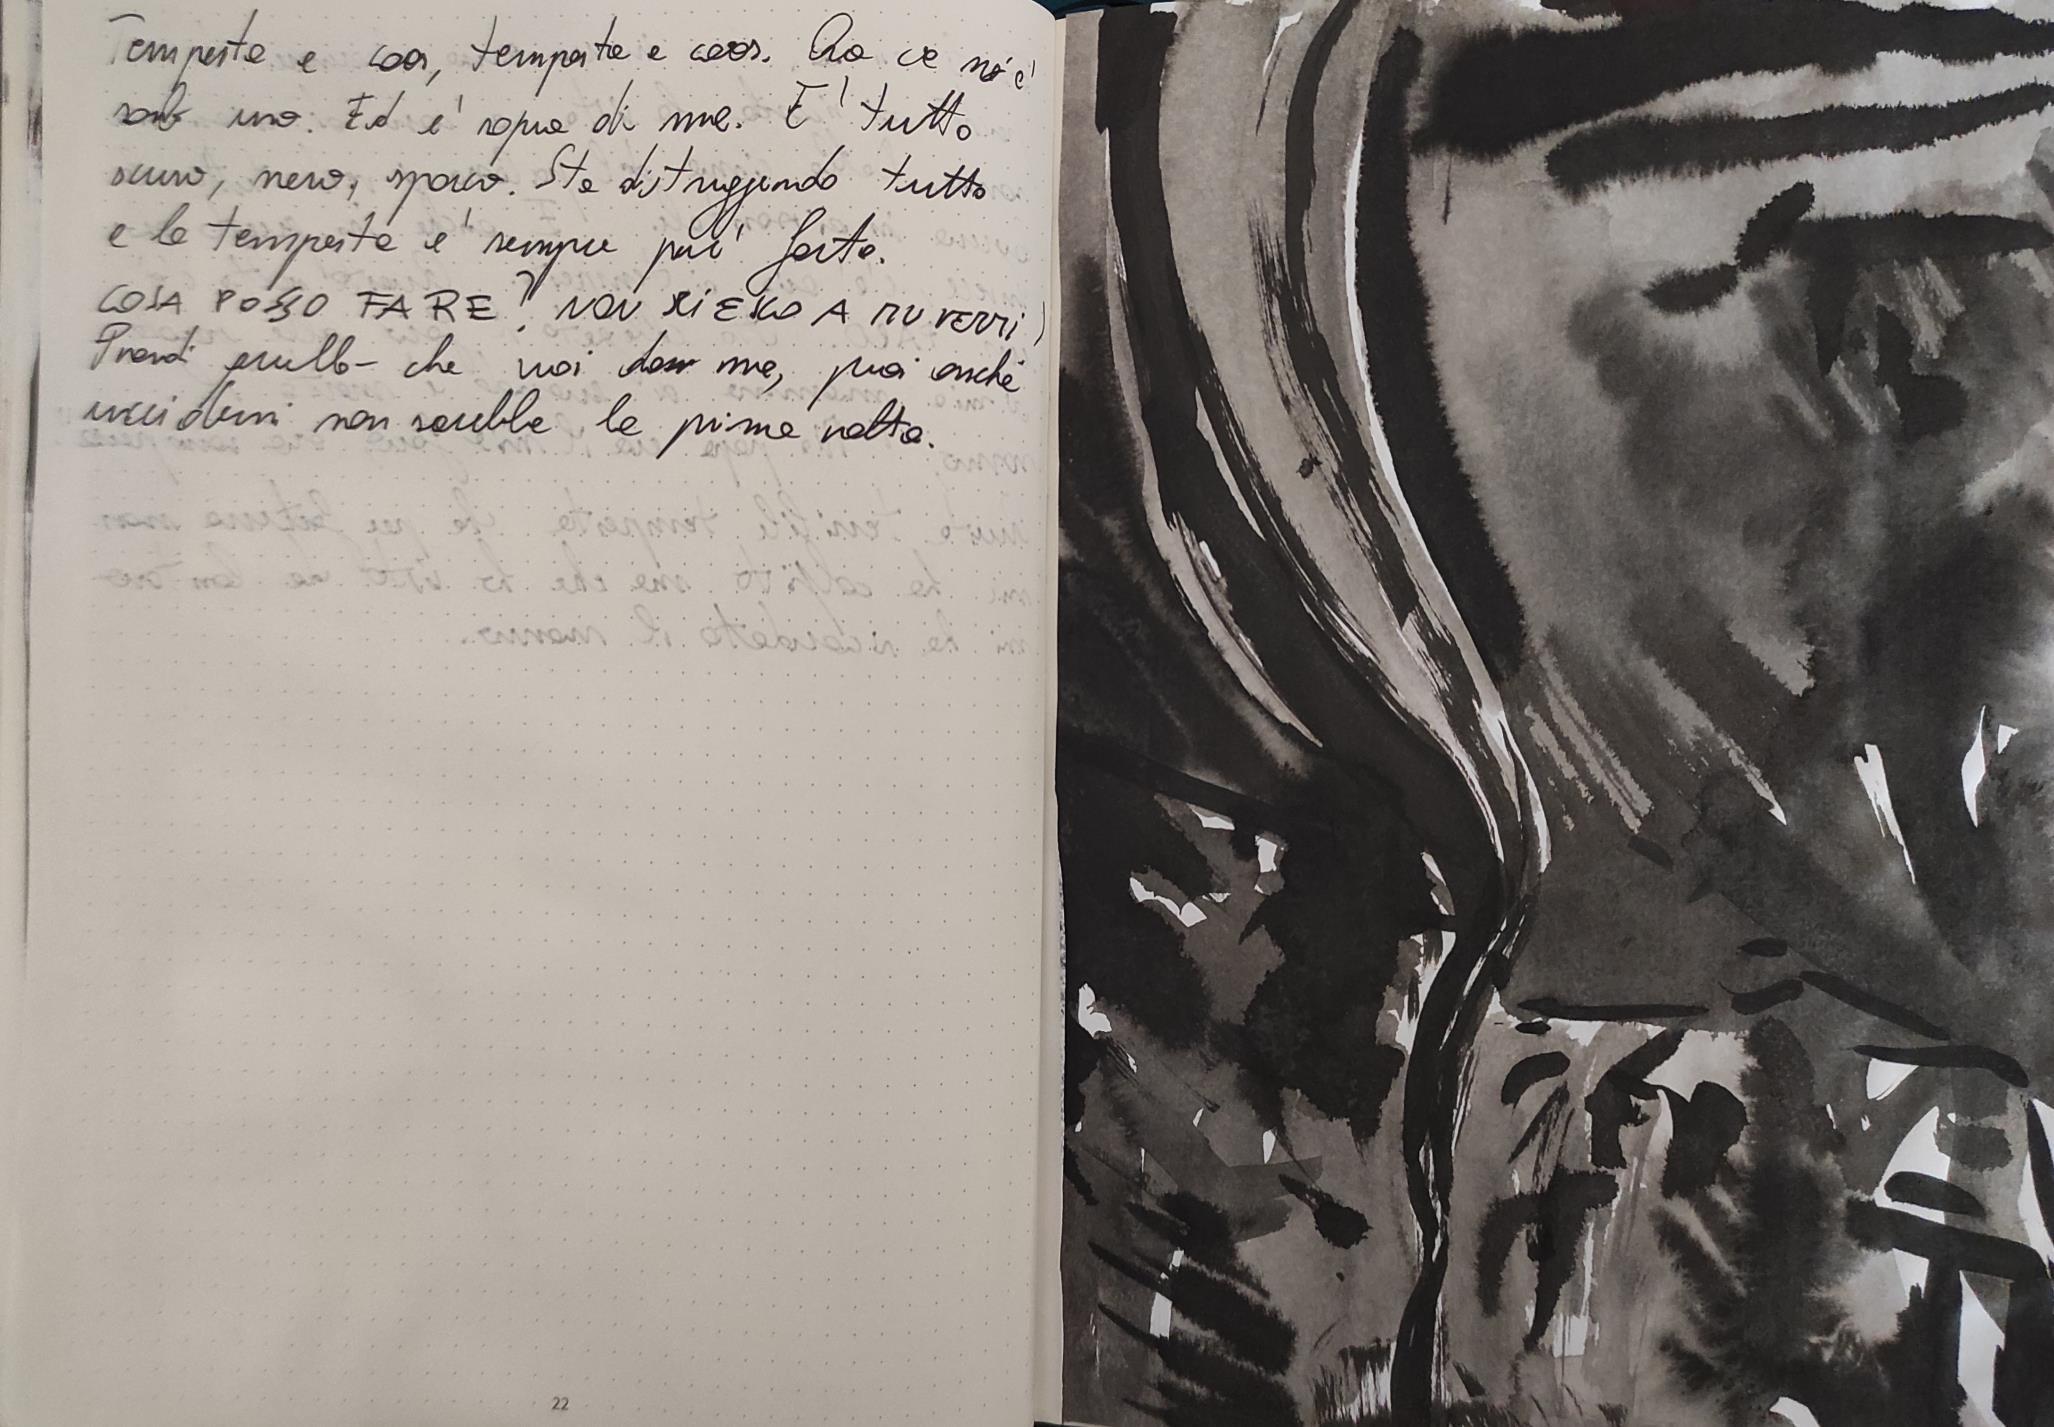 Tempesta e caos, tempesta e caos. Ora ce n'è
solo uno. Ed e' sopra di me. E' tutto
scuro, nero, sporco. Sta distruggendo tutto
e la tempesta e' sempre piu' forte.
COSA POSSO FARE? NON RIESCO A MUOVERMI
Prendi quello che vuoi da me, puoi anche
uccidermi non sarebbe la prima volta.
22